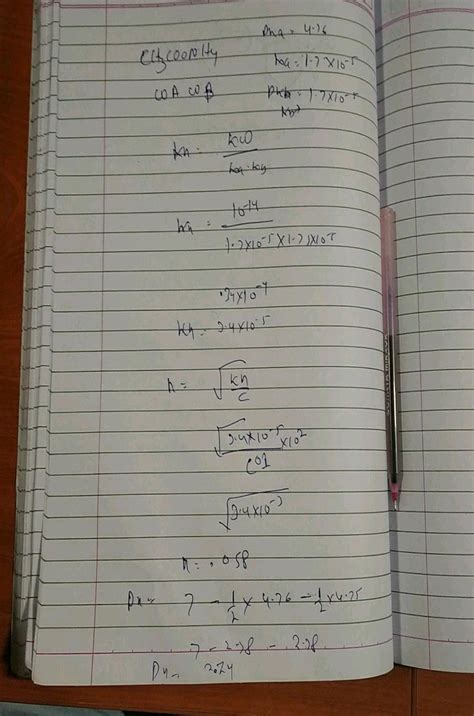 Pka = 4.76
CH3COONH4
ka = 1.7×10-5
WA WB
Pkb = 1.7×10-5
kh = kw
ka·kb
kh = 10-14
1.7×10-5 × 1.7×10-5
.34×10-4
kh = 3.4×10-5
h = √kh
c
√3.4×10-5 ×102
.01
√3.4×10-3
h = .058
PH = 7 - 1/2 × 4.76 - 1/2 × 4.75
7 - 2.38 - 2.38
PH = 2.24